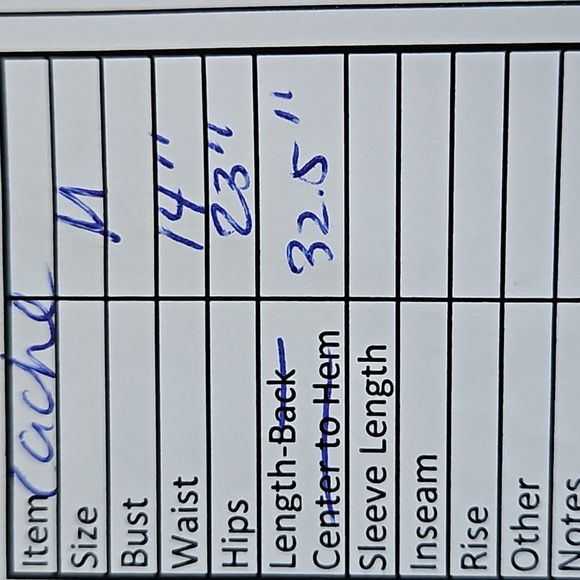 Item Cache
Size M
Bust
Waist 14"
Hips 23"
Length-Back 32.5"
Center to Hem
Sleeve Length
Inseam
Rise
Other
Notes